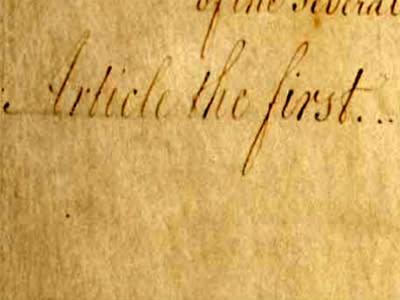 of the several
Article the first. ..